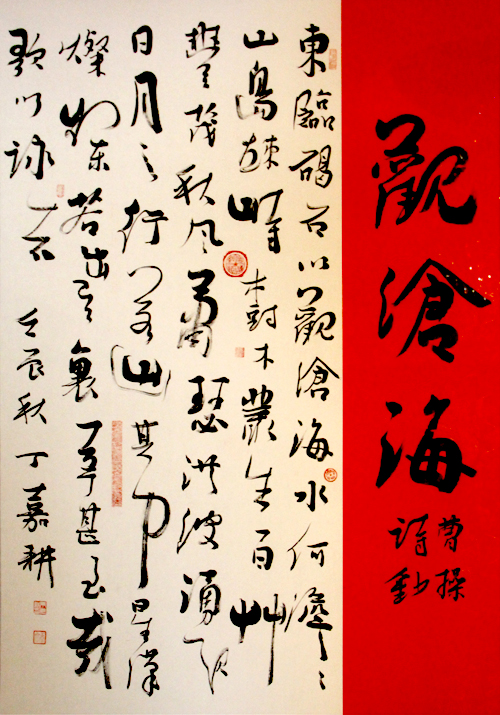 觀滄海
曹操
詩
東臨碣石以觀滄海水何澹々
山島竦峙樹木叢生百艸
豐茂秋風蕭瑟洪波湧起
日月之行若出其中星漢
燦爛若出其裏幸甚至哉
歌以詠志 壬辰秋 丁嘉耕